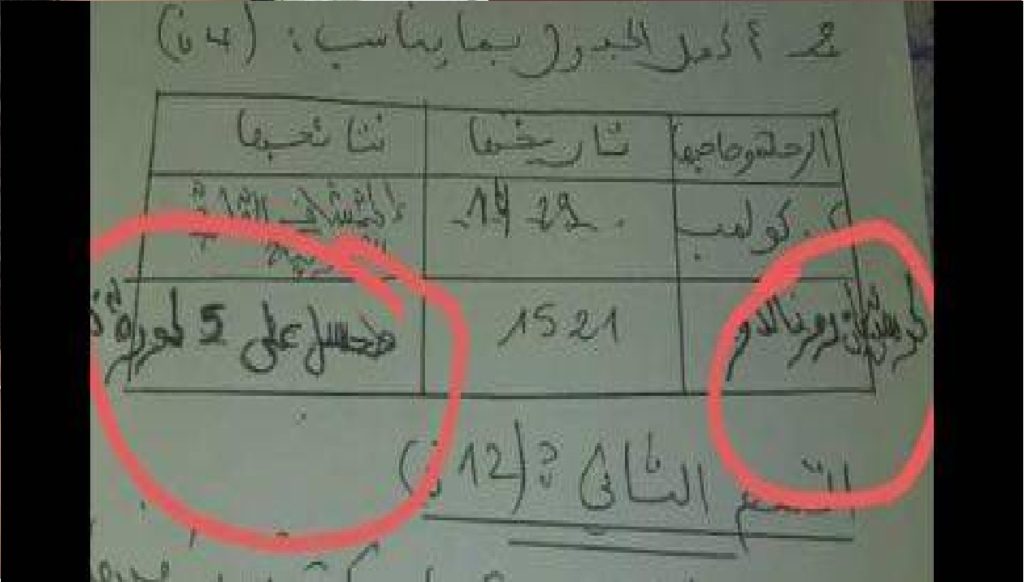 2 - أكمل الجدول بما يناسب: (4 ن)
الرحلة وصاحبها تاريخها نتائجها
ك. كولمب 1492 إكتشاف القارة
كرستيان رونالدو 1521 تحصل على 5 كورة
القسم الثاني: (12 ن)